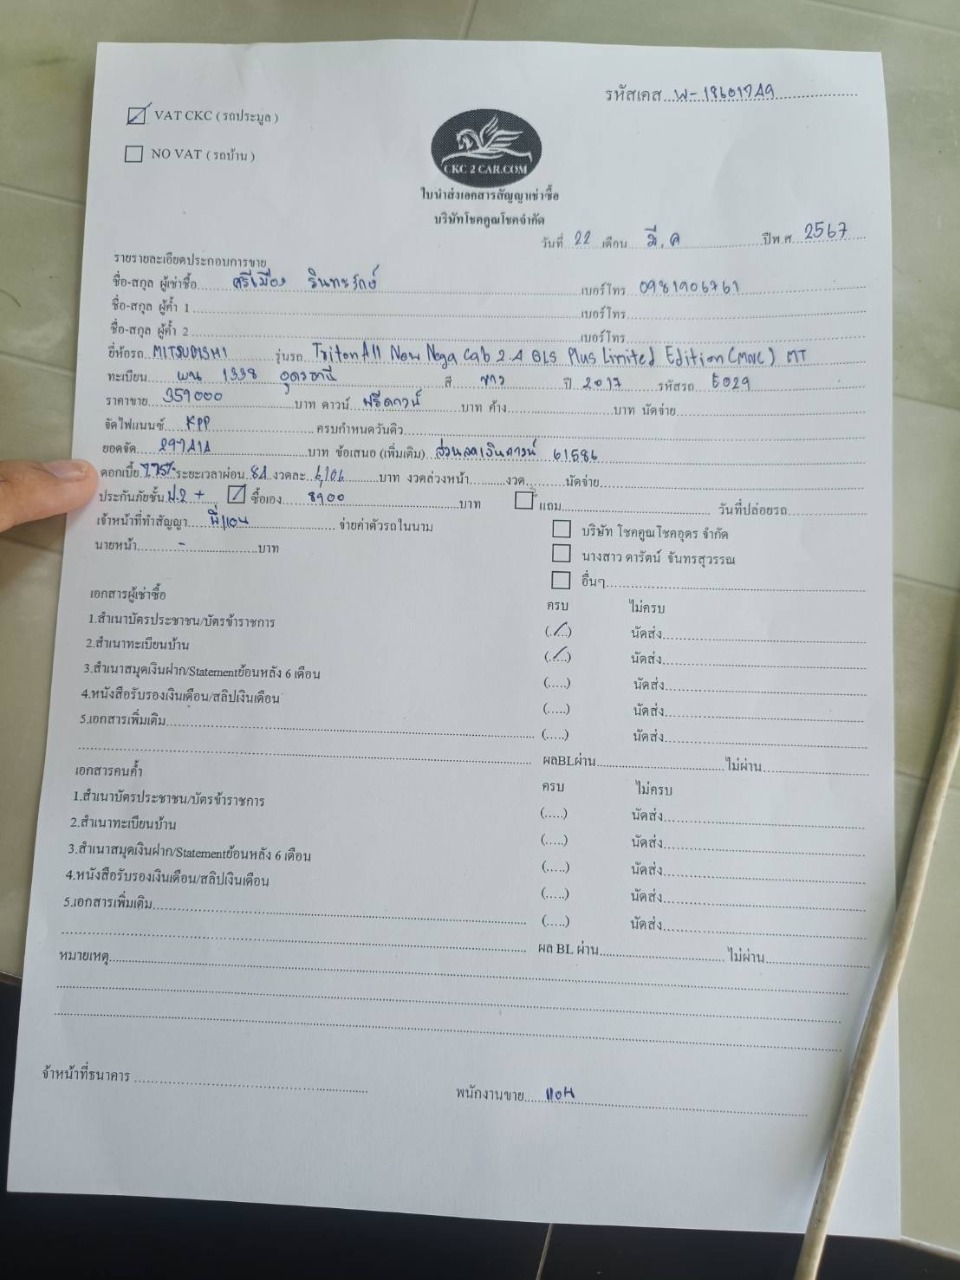 รหัสเคส...W-18601749
VAT CKC ( รถประมูล )
NO VAT ( รถบ้าน )
CKC 2 CAR.COM
ใบนำส่งเอกสารสัญญาเช่าซื้อ
บริษัทโชคคูณโชคจำกัด
วันที่ 22 เดือน มี.ค ปีพ.ศ. 2567
รายรายละเอียดประกอบการขาย
ชื่อ-สกุล ผู้เช่าซื้อ ศรีเมือง รินทะรักษ์ เบอร์โทร 0981906761
ชื่อ-สกุล ผู้ค้ำ 1 เบอร์โทร
ชื่อ-สกุล ผู้ค้ำ 2 เบอร์โทร
ยี่ห้อรถ MITSUBISHI รุ่นรถ Triton All New Mega Cab 2.4 GLS Plus Limited Edition (MIVEC) MT
ทะเบียน ผน 1338 อุดรธานี สี ขาว ปี 2017 รหัสรถ 5029
ราคาขาย 359000 บาท ดาวน์ ฟรีดาวน์ บาท ค้าง บาท นัดจ่าย
จัดไฟแนนซ์ KPP ครบกำหนดวันคิว
ยอดจัด 297414 บาท ข้อเสนอ (เพิ่มเติม) ส่วนลดเงินดาวน์ 61586
ดอกเบี้ย 7.75% ระยะเวลาผ่อน 84 งวดละ 6,106 บาท งวดล่วงหน้า งวด นัดจ่าย
ประกันภัยชั้น ป.2 + ซื้อเอง 8900 บาท แถม วันที่ปล่อยรถ
เจ้าหน้าที่ทำสัญญา พี่แอน จ่ายค่าตัวรถในนาม
บริษัท โชคคูณโชคอุดร จำกัด
นายหน้า - บาท
นางสาว ดารัตน์ จันทรสุวรรณ
อื่นๆ
เอกสารผู้เช่าซื้อ ครบ ไม่ครบ
1.สำเนาบัตรประชาชน/บัตรข้าราชการ (../..) นัดส่ง
2.สำเนาทะเบียนบ้าน (../..) นัดส่ง
3.สำเนาสมุดเงินฝาก/Statementย้อนหลัง 6 เดือน (.....) นัดส่ง
4.หนังสือรับรองเงินเดือน/สลิปเงินเดือน (.....) นัดส่ง
5.เอกสารเพิ่มเติม (.....) นัดส่ง
ผลBLผ่าน ไม่ผ่าน
เอกสารคนค้ำ ครบ ไม่ครบ
1.สำเนาบัตรประชาชน/บัตรข้าราชการ (.....) นัดส่ง
2.สำเนาทะเบียนบ้าน (.....) นัดส่ง
3.สำเนาสมุดเงินฝาก/Statementย้อนหลัง 6 เดือน (.....) นัดส่ง
4.หนังสือรับรองเงินเดือน/สลิปเงินเดือน (.....) นัดส่ง
5.เอกสารเพิ่มเติม (.....) นัดส่ง
ผล BL ผ่าน ไม่ผ่าน
หมายเหตุ
จ้าหน้าที่ธนาคาร
พนักงานขาย แอน